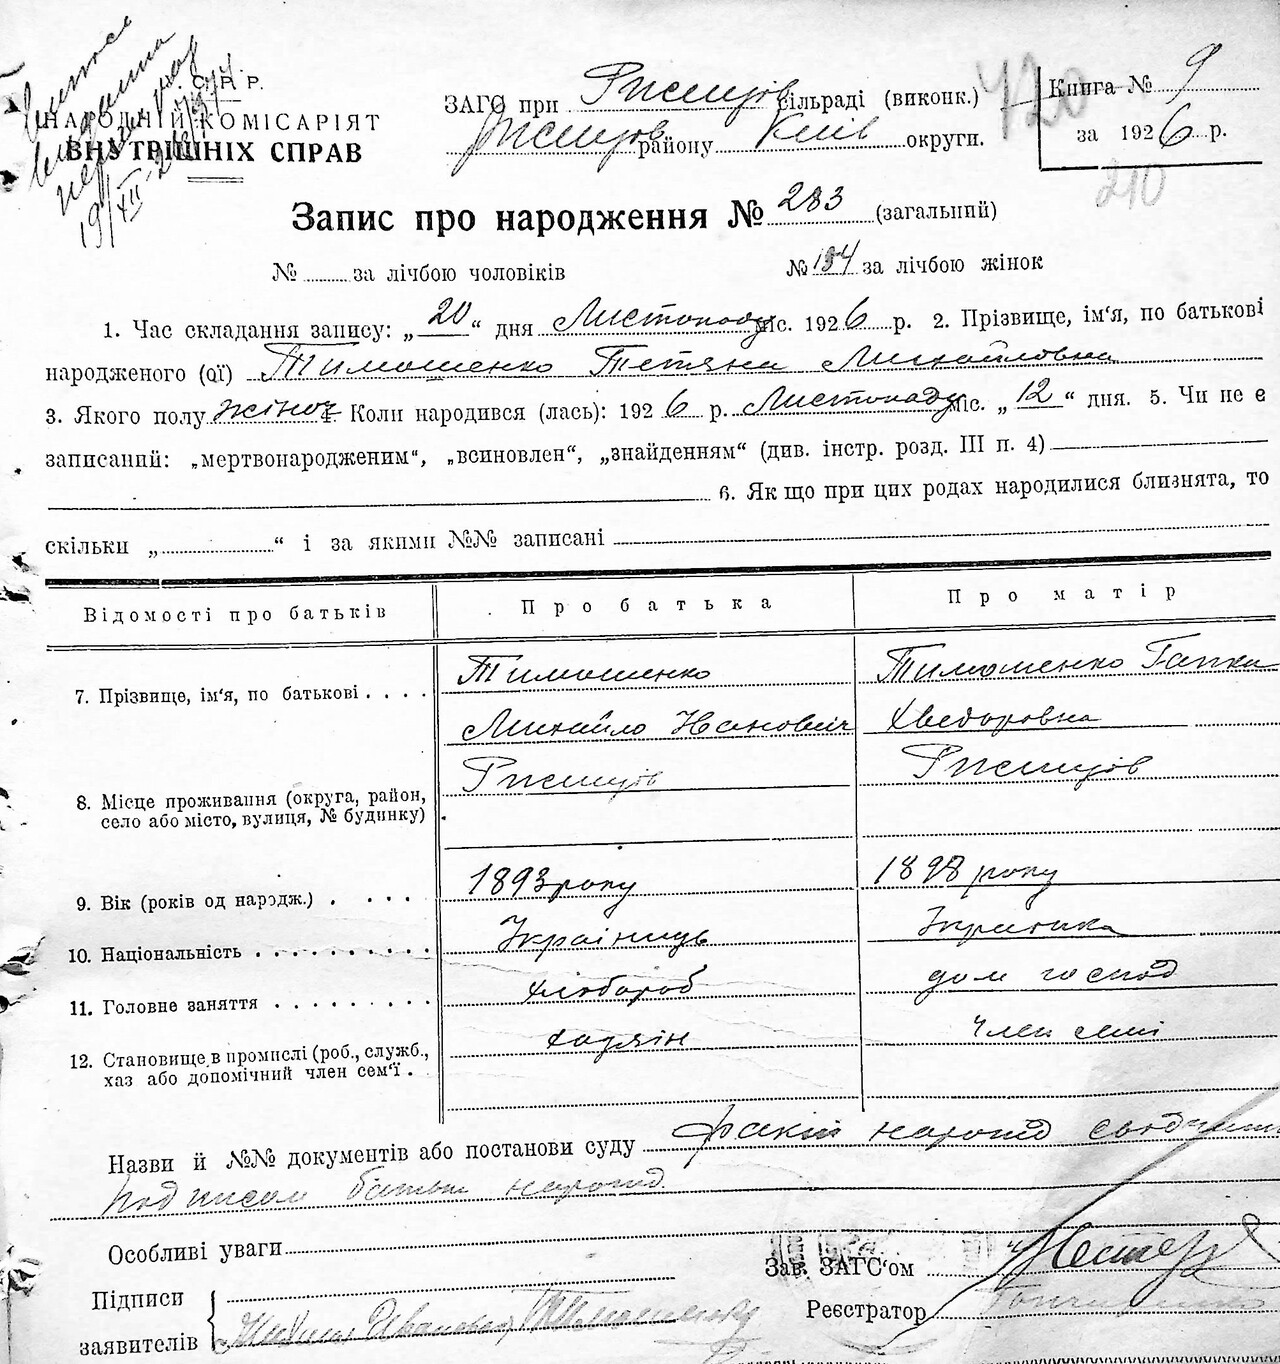 С. Р. Р.
НАРОДНІЙ КОМІСАРІЯТ
ВНУТРІШНІХ СПРАВ
19/XII-
ЗАГС при Ржищів сільраді (виконк.)
Ржищів району Київ округи.
720
Книга № 9
за 1926 р.
210
Запис про народження № 283 (загальний)
№ за лічбою чоловіків № 134 за лічбою жінок
1. Час складання запису: „20“ дня Листопаду міс. 1926 р. 2. Прізвище, ім'я, по батькові
народженого (ої) Тимошенко Тетяна Михайловна
3. Якого полу жіноч 4. Коли народився (лась): 1926 р. Листопаду міс. „12“ дня. 5. Чи не є
записаний: „мертвонародженим“, „всиновлен“, „знайденням“ (див. інстр. розд. III п. 4)
6. Як що при цих родах народилися близнята, то
скільки „ “ і за якими №№ записані
Відомості про батьків Про батька Про матір
7. Прізвище, ім'я, по батькові . . . . Тимошенко Тимошенко Гапка
Михайло Іванович Хведоровна
8. Місце проживання (округа, район, Ржищів Ржищів
село або місто, вулиця, № будинку)
9. Вік (років од нардж.) . . . . 1893 року 1898 року
10. Національність . . . . . . . . . . Українець Українка
11. Головне заняття . . . . . . . . . Хлібороб дом господ
12. Становище в промислі (роб., служб., хазяїн член семі
хаз або допомічний член сем'ї .
Назви й №№ документів або постанови суду
батьк
Особливі уваги
Зав. ЗАГС'ом
Підписи
Реєстратор
заявителів Иванович Тимошенко